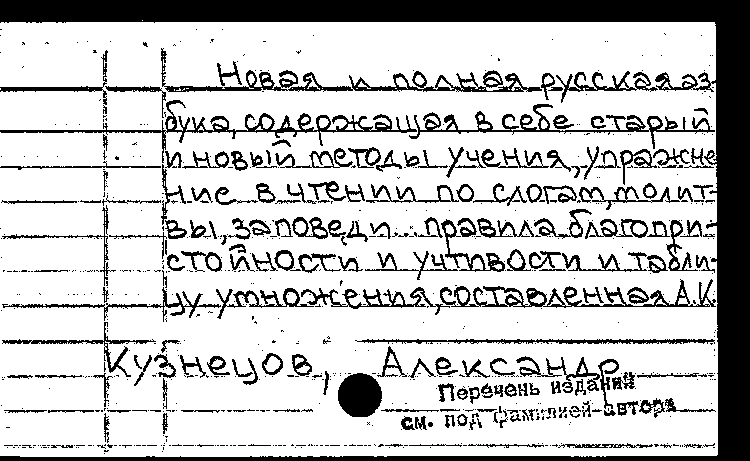 Новая и полная русская аз-
бука, содержащая в себе старый
и новый методы учения, упражне
ние в чтении по слогам, молит-
вы, заповеди... правила благопри-
стойности и учтивости и табли-
цу умножения, составленная А.К.
Кузнецов, Александр
Перечень изданий
см. под фамилией автора